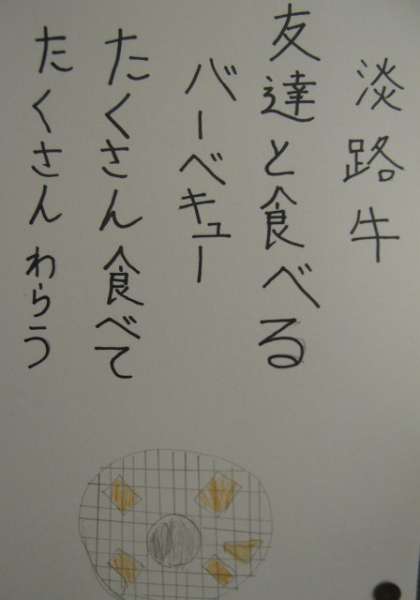 淡路牛
友達と食べる
バーベキュー
たくさん食べて
たくさんわらう